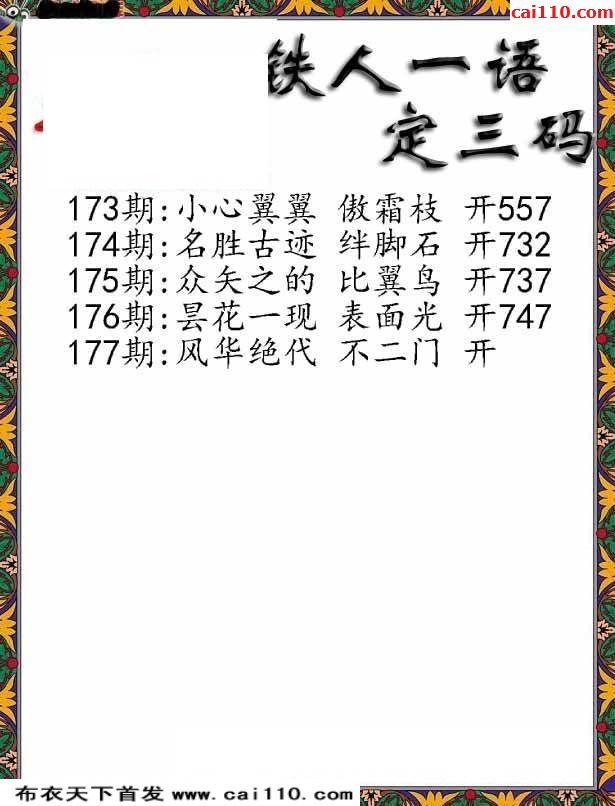 cai110.com
铁人一语
定三码
173期:小心翼翼 傲霜枝 开557
174期:名胜古迹 绊脚石 开732
175期:众矢之的 比翼鸟 开737
176期:昙花一现 表面光 开747
177期:风华绝代 不二门 开
布衣天下首发 www.cai110.com